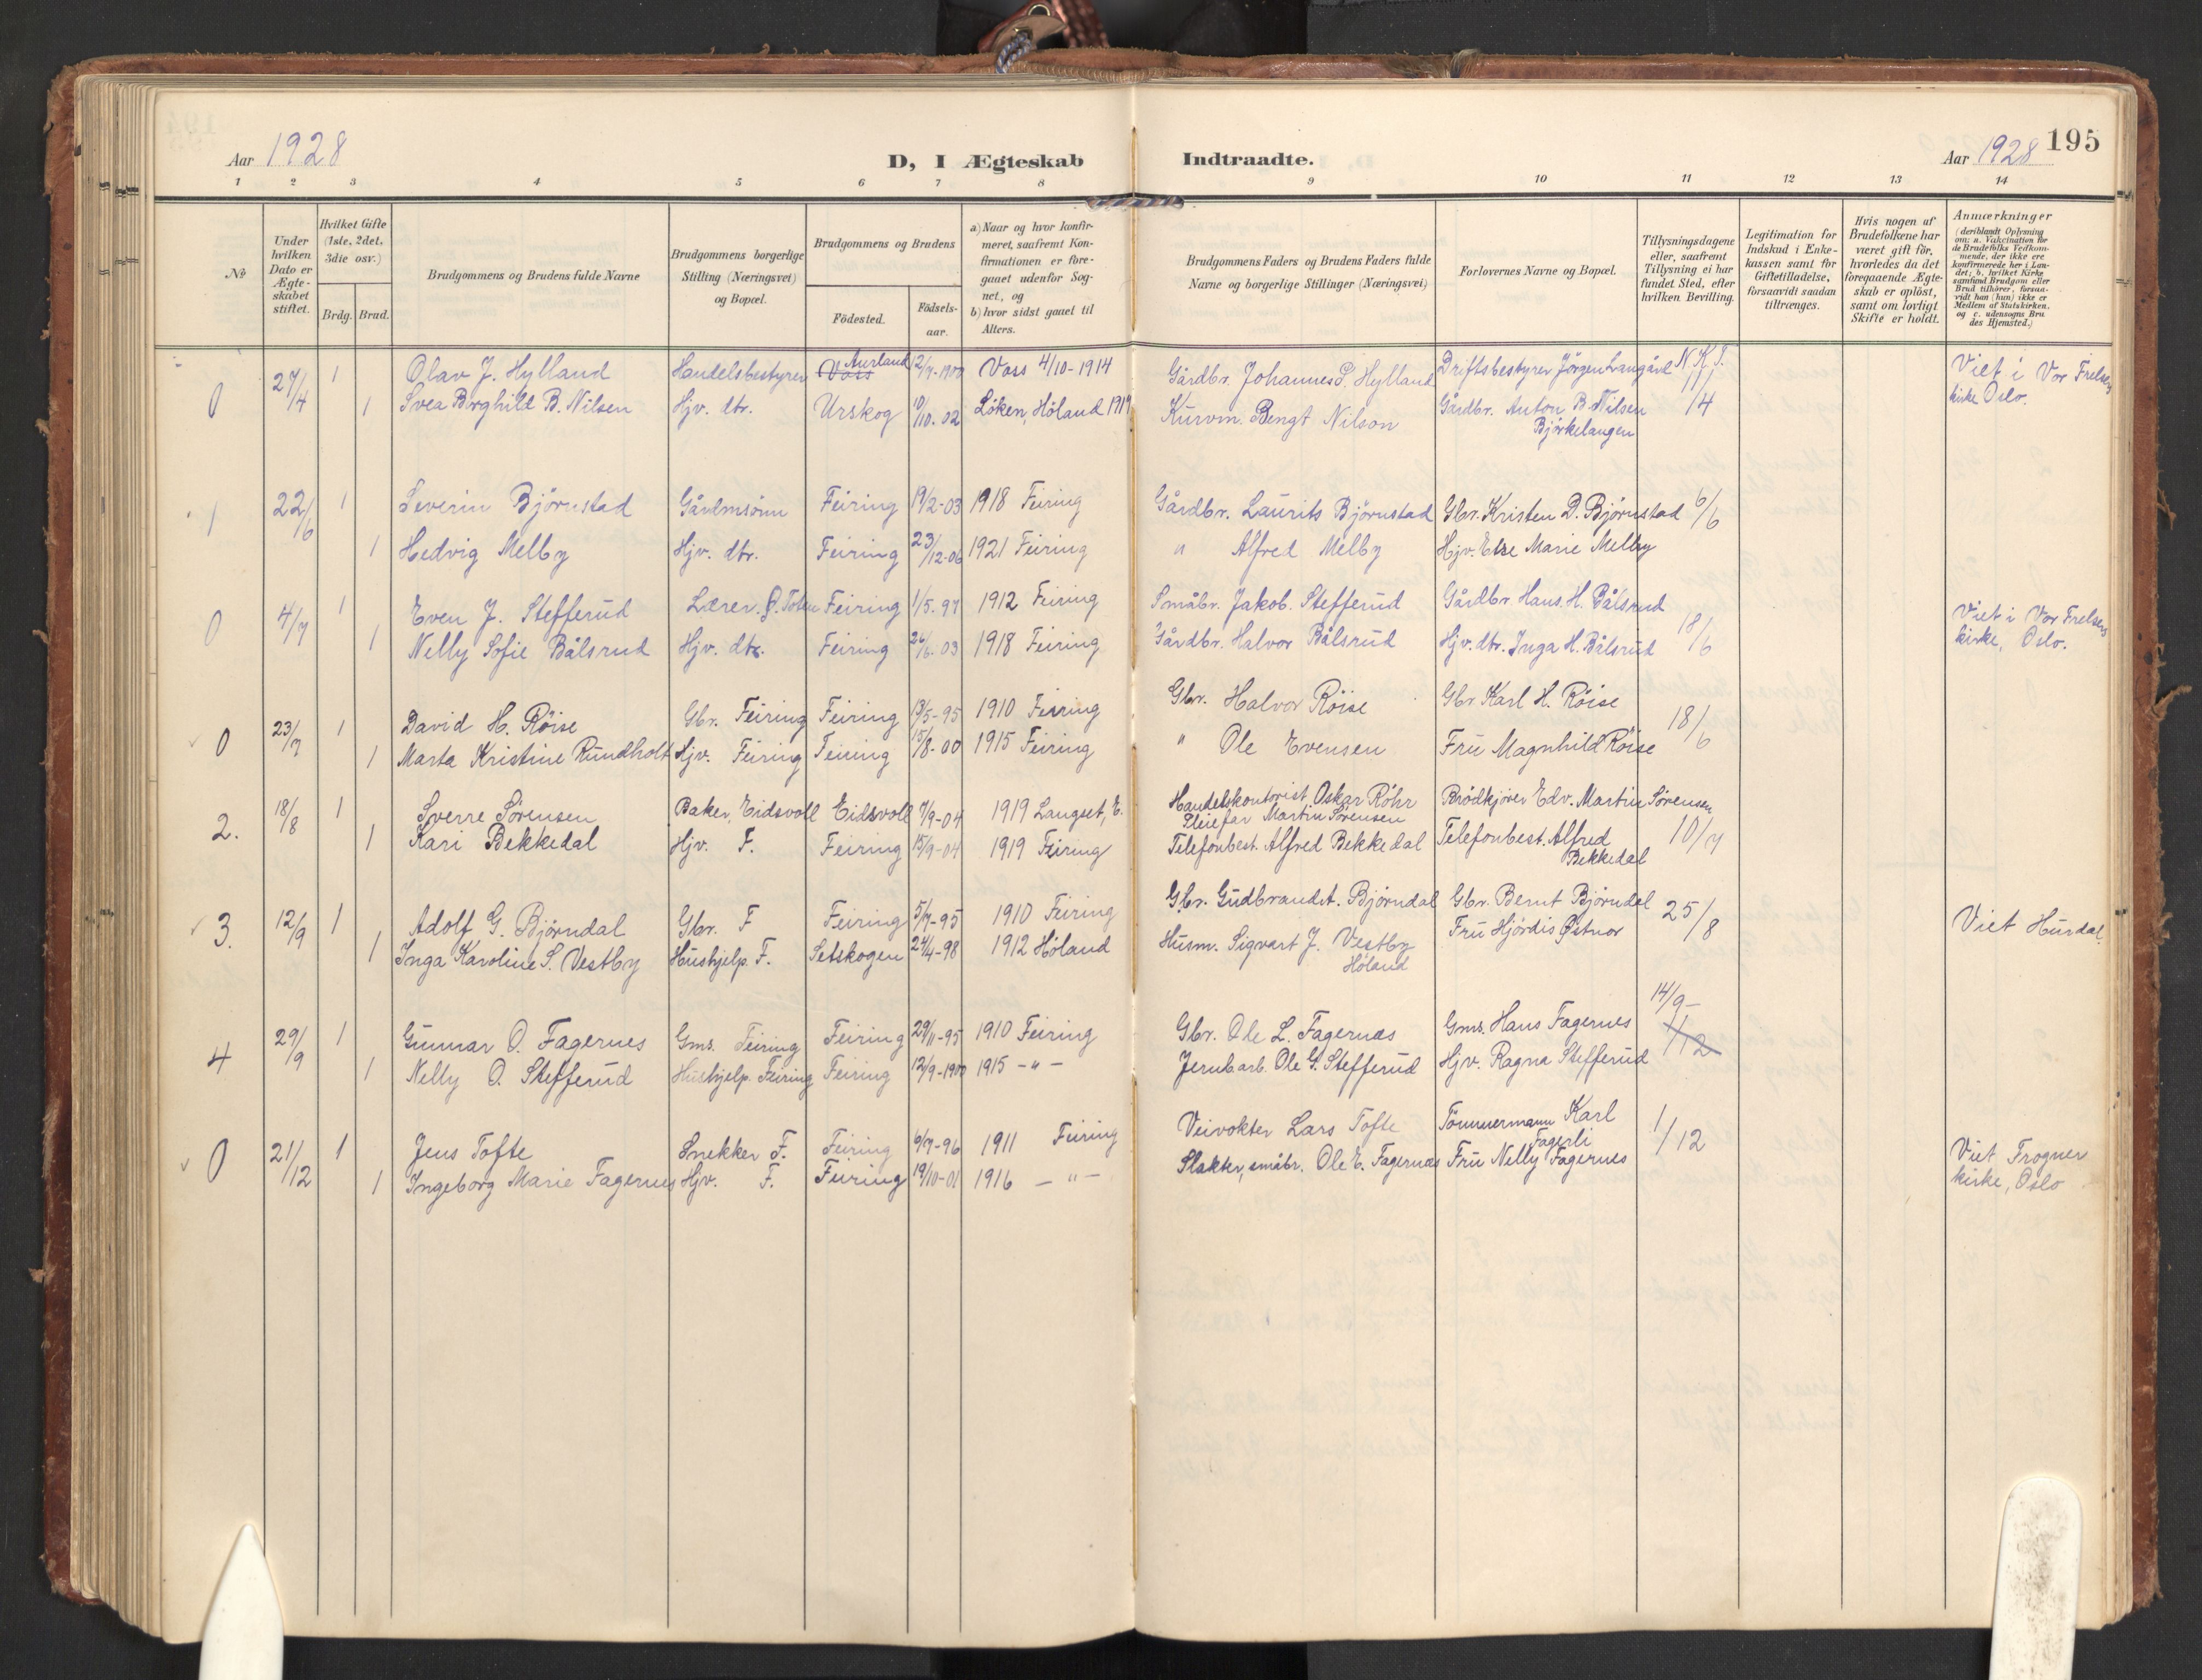 Aar 1928
D, I Ægteskab
Indtraadte.
Aar 1928
195
1 2 3 4 5 6 7 8 9 10 11 12 13 14
No
Under hvilken Dato er Ægteskabet stiftet.
Hvilket Gifte (1ste, 2det, 3die osv.)
Brdg. Brud.
Brudgommens og Brudens fulde Navne
Brudgommens borgerlige Stilling (Næringsvei) og Bopæl.
Brudgommens og Brudens
Födested.
Födselsaar.
a) Naar og hvor konfirmeret, saafremt Konfirmationen er foregaaet udenfor Sognet, og
b) hvor sidst gaaet til Alters.
Brudgommens Faders og Brudens Faders fulde Navne og borgerlige Stillinger (Næringsvei)
Forlovernes Navne og Bopæl.
Tillysningsdagene eller, saafremt Tillysning ei har fundet Sted, efter hvilken Bevilling.
Legitimation for Indskud i Enkekassen samt for Giftetilladelse, forsaavidt saadan tiltrænges.
Hvis nogen af Brudefolkene har været gift för, hvorledes da det foregaaende Ægteskab er oplöst, samt om lovligt Skifte er holdt.
Anmærkninger (deriblandt Oplysning om: a. Vakcination for de Brudefolks Vedkommende, der ikke ere konfirmerede her i Landet; b. hvilket Kirkesamfund Brudgom eller Brud tilhörer, forsaavidt han (hun) ikke er Medlem af Statskirken. og c. udensogns Brudes Hjemsted.)
0 27/4 1 Olav J. Hylland Handelsbestyrer Voss Aurland 12/7-1900 Voss 4/10-1914 Gårdbr. Johannes S. Hylland Driftsbestyrer Jörgen Langård N.K.T. Viet i Vor Frelsers
1 Svea Borghild B. Nilsen Hjv. dtr. Urskog 10/10.02 Løken, Höland 1917 Kurvm. Bengt Nilson Gårdbr. Anton B. Nilsen 11/4 kirke Oslo.
Bjørkelangen
1 22/6 1 Severin Björnstad Gårdmsönn Feiring 19/2-03 1918 Feiring Gårdbr. Laurits Björnstad Gbr. Kristen D. Bjørnstad 6/6
1 Hedvig Melby Hjv. dtr. Feiring 23/12-06 1921 Feiring " Alfred Melby Hjv. Else Marie Melby
0 4/7 1 Even J. Stefferud Lærer. Ø. Toten Feiring 1/5-97 1912 Feiring Småbr. Jakob. Stefferud Gårdbr Hans. H. Bålsrud Viet i Vor Frelsers
1 Nelly Sofie Bålsrud Hjv. dtr. Feiring 26/6-03 1918 Feiring Gårdbr. Halvor Bålsrud Hjv. dtr. Inga H. Bålsrud 18/6 kirke, Oslo.
0 23/7 1 David H. Röise Gbr. Feiring Feiring 13/5-95 1910 Feiring Gbr. Halvor Röise Gbr Karl H. Röise 18/6
1 Marta Kristine Rundholt Hjv. Feiring Feiring 15/8-00 1915 Feiring " Ole Evensen Fru Magnhild Röise
2. 18/8 1 Sverre Sørensen Baker, Eidsvoll Eidsvoll 7/9-04 1919 Langset, E. Handelskontorist Oskar Röhr Brödkjörer Edv. Martin Sørensen
Pleiefar Martin Sörensen
1 Kari Bekkedal Hjv. F. Feiring 15/9-04 1919 Feiring Telefonbest. Alfred Bekkedal Telefonbest. Alfred Bekkedal 10/7
3. 12/9 1 Adolf G. Bjørndal Gbr. F Feiring 5/7-95 1910 Feiring Gbr. Gudbrand A. Bjørndal Gbr. Bernt Bjørndal 25/8 Viet Hurdal.
1 Inga Karoline S. Vestby Hushjelp. F. Setskogen 24/4-98 1912 Höland Husm. Sigvart J. Vestby Fru Hjördis Østnor
Höland
14/9-
4 29/9 1 Gunnar O. Fagernes Gms. Feiring Feiring 29/11-95 1910 Feiring Gbr. Ole L. Fagernæs Gms. Hans Fagernes 1/12
1 Nelly O. Stefferud Hushjelp. Feiring Feiring 12/9-1900 1915 -"- Jernb arb. Ole G. Stefferud Hjv. Ragna Stefferud
0 21/12 1 Jens Tofte Snekker F. Feiring 6/7-96 1911 Feiring Veivokter Lars Tofte Tömmermann Karl Fagerli 1/12 Viet Frogner
1 Ingeborg Marie Fagernes Hjv. F. Feiring 19/10-01 1916 -"- Slakter, småbr. Ole E. Fagernæs Fru Nelly Fagernes kirke, Oslo